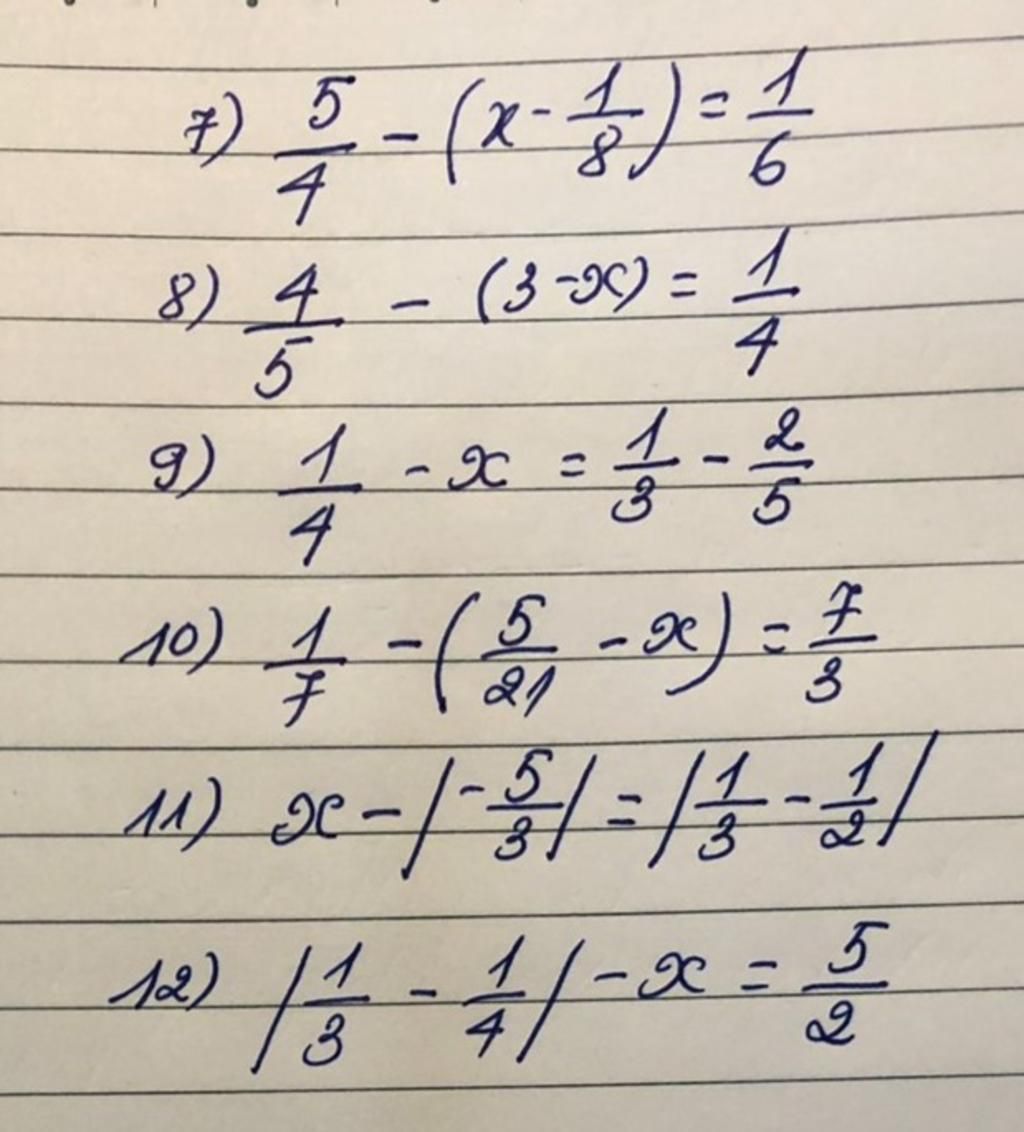 7) 5/4 - (x - 1/8) = 1/6
8) 4/5 - (3 - x) = 1/4
9) 1/4 - x = 1/3 - 2/5
10) 1/7 - (5/21 - x) = 7/3
11) x - |-5/3| = |1/3 - 1/2|
12) |1/3 - 1/4| - x = 5/2